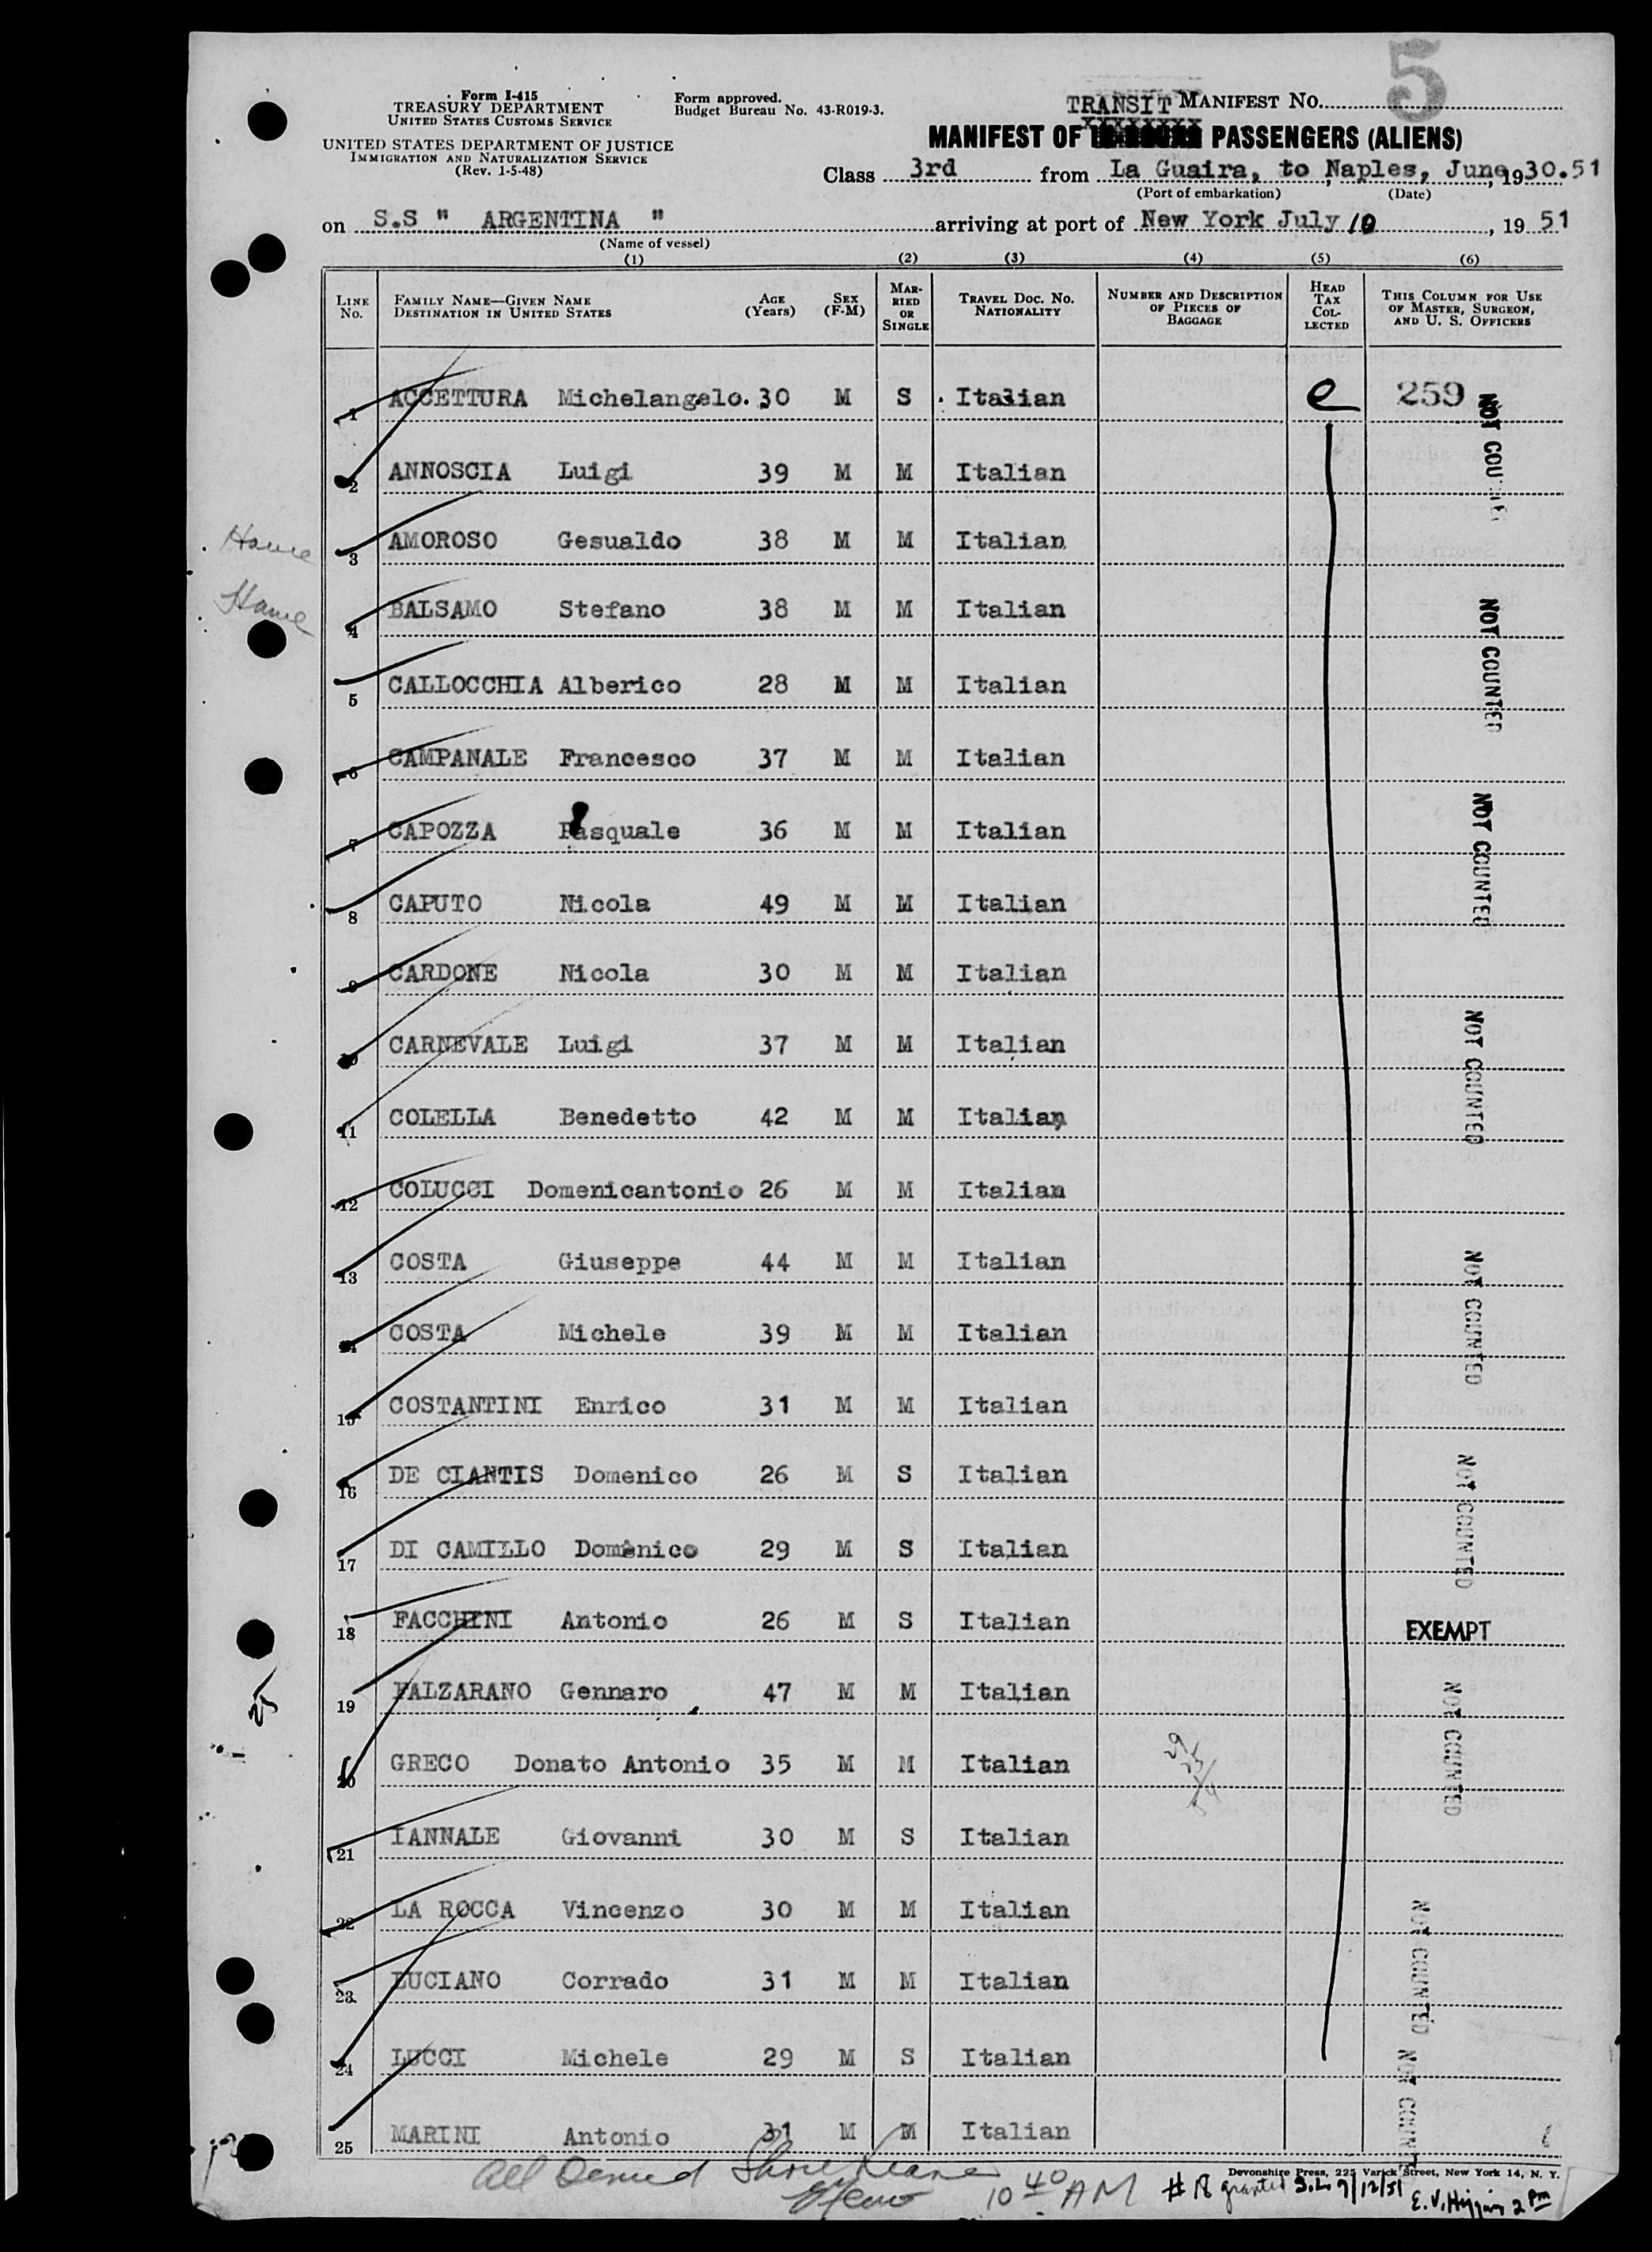 5
Form I-415
TREASURY DEPARTMENT
UNITED STATES CUSTOMS SERVICE
UNITED STATES DEPARTMENT OF JUSTICE
IMMIGRATION AND NATURALIZATION SERVICE
(Rev. 1-5-48)
Form approved.
Budget Bureau No. 43-R019-3.
TRANSIT MANIFEST NO.
MANIFEST OF PASSENGERS (ALIENS)
Class 3rd from La Guaira, to Naples, June, 1930.51
(Port of embarkation) (Date)
on S.S " ARGENTINA " arriving at port of New York July 10, 19 51
(Name of vessel)
(1) (2) (3) (4) (5) (6)
LINE NO. FAMILY NAME—GIVEN NAME DESTINATION IN UNITED STATES AGE (Years) SEX (F-M) MARRIED OR SINGLE TRAVEL DOC. NO. NATIONALITY NUMBER AND DESCRIPTION OF PIECES OF BAGGAGE HEAD TAX COLLECTED THIS COLUMN FOR USE OF MASTER, SURGEON, AND U. S. OFFICERS
1 ACCETTURA Michelangelo. 30 M S Italian e 259
NOT COUNTED
2 ANNOSCIA Luigi 39 M M Italian
Hause
3 AMOROSO Gesualdo 38 M M Italian
4 BALSAMO Stefano 38 M M Italian
NOT COUNTED
5 CALLOCCHIA Alberico 28 M M Italian
6 CAMPANALE Francesco 37 M M Italian
7 CAPOZZA Pasquale 36 M M Italian
NOT COUNTED
8 CAPUTO Nicola 49 M M Italian
9 CARDONE Nicola 30 M M Italian
10 CARNEVALE Luigi 37 M M Italian
NOT COUNTED
11 COLELLA Benedetto 42 M M Italian
12 COLUCCI Domenicantonio 26 M M Italian
13 COSTA Giuseppe 44 M M Italian
NOT COUNTED
14 COSTA Michele 39 M M Italian
15 COSTANTINI Enrico 31 M M Italian
16 DE CIANTIS Domenico 26 M S Italian
NOT COUNTED
17 DI CAMILLO Domenico 29 M S Italian
18 FACCHINI Antonio 26 M S Italian EXEMPT
19 FALZARANO Gennaro 47 M M Italian
NOT COUNTED
20 GRECO Donato Antonio 35 M M Italian
21 IANNALE Giovanni 30 M S Italian
22 LA ROCCA Vincenzo 30 M M Italian
NOT COUNTED
23 LUCIANO Corrado 31 M M Italian
24 LUCCI Michele 29 M S Italian
NOT COUNT
25 MARINI Antonio 31 M M Italian
Devonshire Press, 225 Varick Street, New York 14, N. Y.
All Denied Shore Leave 10 40 AM
#18 granted S.L. 7/12/51
E.V. Higgins 2 PM